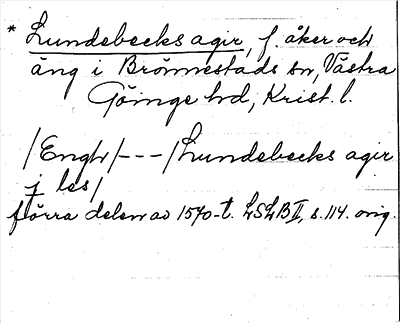 * Lundebecks agir, f. åker och
äng i Brönnestads sn, Västra
Göinge hd, Krist. l.
/Engh/---/Lundebecks agir
j les/
förra delen av 1570-t. LSLB II, s. 114. orig.